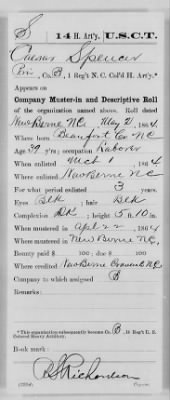 S 14 H. Art'y. U.S.C.T.
Caesar Spencer
Priv, Co. B, 1 Reg't N. C. Col'd H. Art'y.*
Appears on
Company Muster-in and Descriptive Roll
of the organization named above. Roll dated
New Berne NC May 2, 1864
Where born Beaufort Co NC
Age 39 y'rs; occupation Laborer
When enlisted Mch 1, 1864
Where enlisted New Berne NC
For what period enlisted 3 years.
Eyes Blk; hair Blk
Complexion Dk; height 5 ft. 10 in.
When mustered in Apl 22, 1864
Where mustered in New Berne NC.
Bounty paid $ 100; due $ 100
Where credited New Berne Craven Co NC
Company to which assigned B
Remarks:
*This organization subsequently became Co. B, 14 Reg't U. S.
Colored Heavy Artillery.
Book mark:
R S Richardson